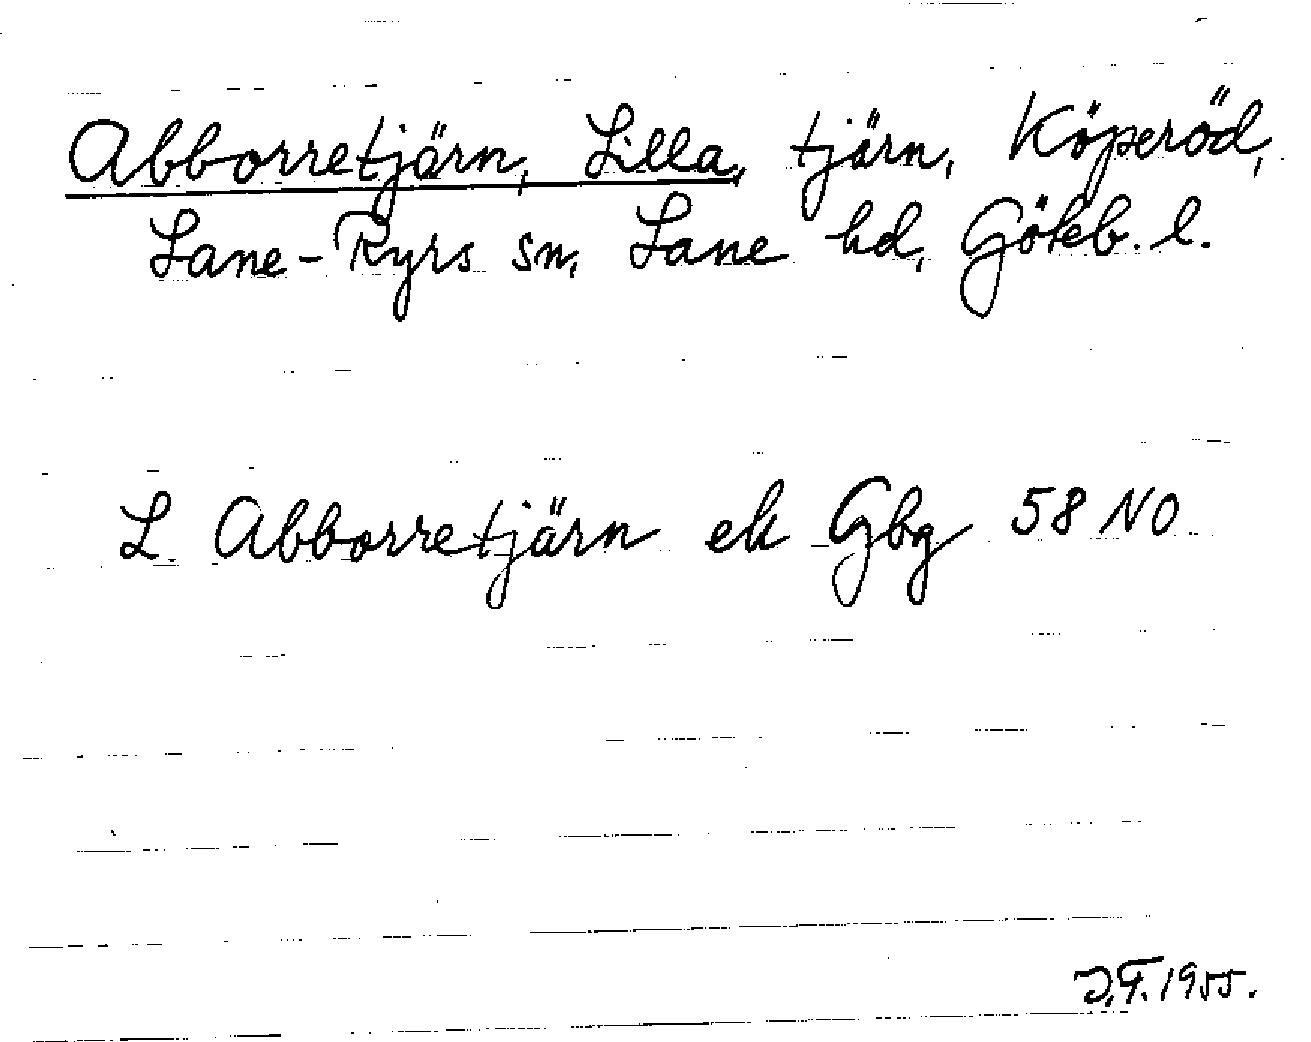 Abborretjärn, Lilla, tjärn, Köperöd,
Lane-Ryrs sn, Lane hd, Göteb. l.
L Abborretjärn ek Gbg 58 NO
J.F. 1955.